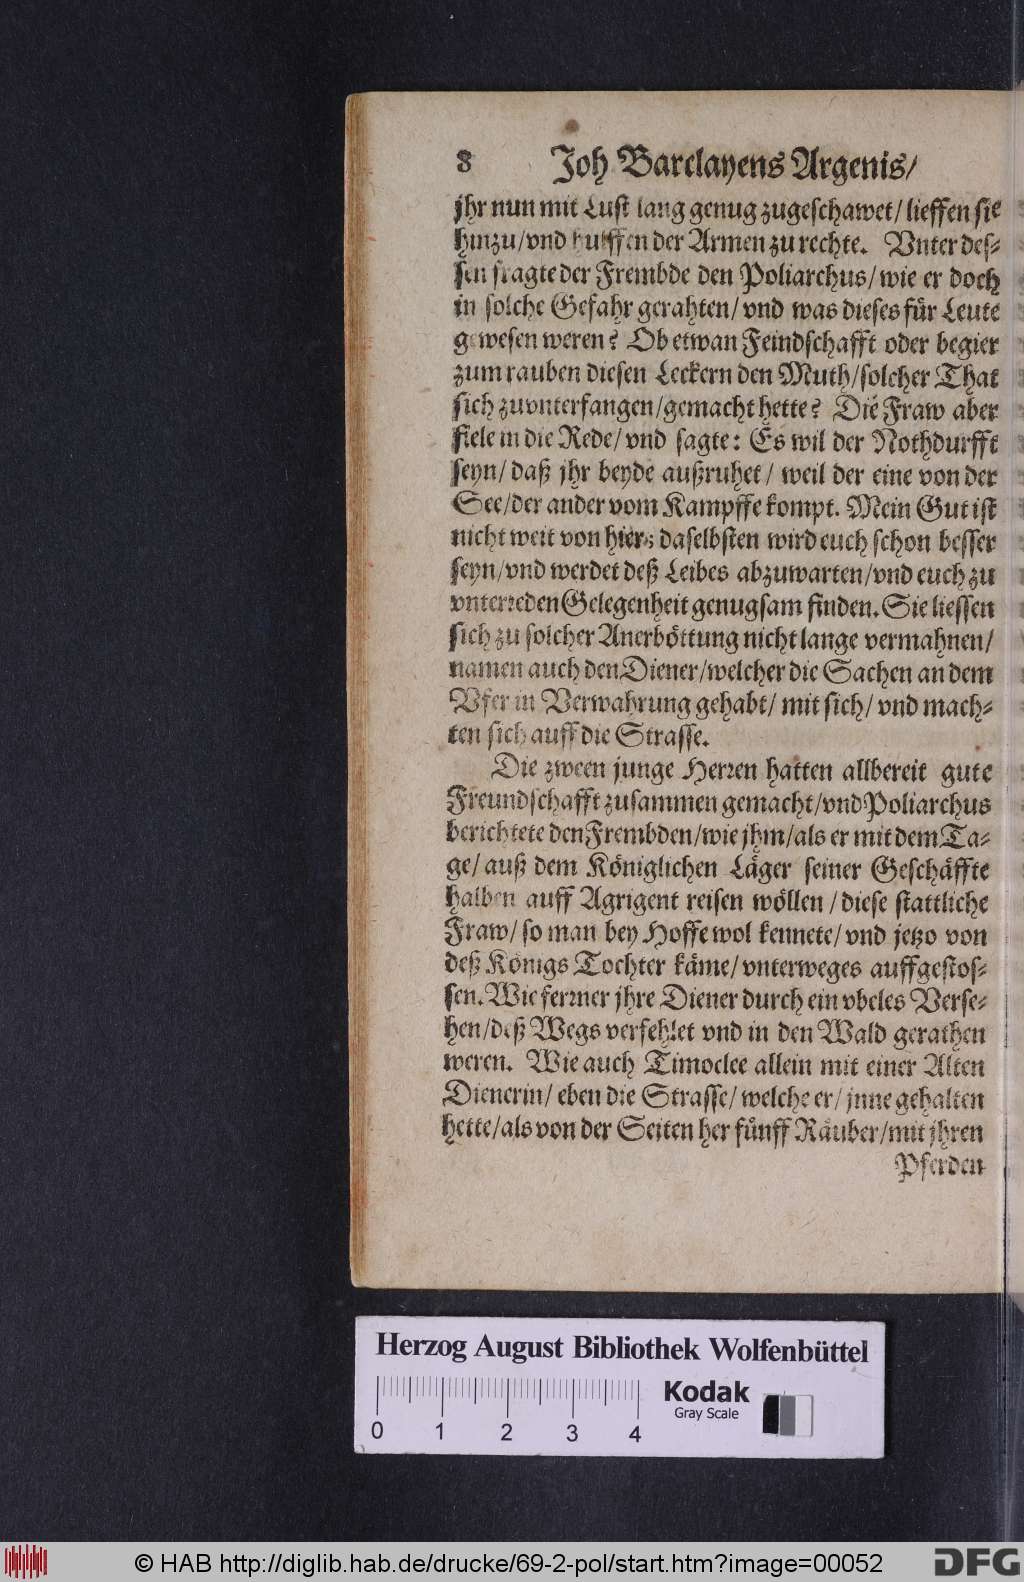 8 Joh Barclayens Argenis/
jhr nun mit Lust lang genug zugeschawet/ lieffen sie
hinzu/vnd hulffen der Armen zu rechte. Vnter des-
sen fragte der Frembde den Poliarchus/ wie er doch
in solche Gefahr gerahten/ vnd was dieses für Leute
gewesen weren? Ob etwan Feindschafft oder begier
zum rauben diesen Leckern den Muth/solcher That
sich zuvnterfangen/gemacht hette? Die Fraw aber
fiele in die Rede/ vnd sagte: Es wil der Nothdurfft
seyn/ daß jhr beyde außruhet/ weil der eine von der
See/der ander vom Kampffe kompt. Mein Gut ist
nicht weit von hier; daselbsten wird euch schon besser
seyn/vnd werdet deß Leibes abzuwarten/vnd euch zu
vnterreden Gelegenheit genugsam finden. Sie liessen
sich zu solcher Anerböttung nicht lange vermahnen/
namen auch den Diener/welcher die Sachen an dem
Vfer in Verwahrung gehabt/ mit sich/ vnd mach-
ten sich auff die Strasse.
Die zween junge Herren hatten allbereit gute
Freundschafft zusammen gemacht/vnd Poliarchus
berichtete den Frembden/wie jhm/als er mit dem Ta-
ge/ auß dem Königlichen Läger seiner Geschäffte
halben auff Agrigent reisen wöllen/ diese stattliche
Fraw/ so man bey Hoffe wol kennete/ vnd jetzo von
deß Königs Tochter käme/ vnterweges auffgestos-
sen. Wie ferrner jhre Diener durch ein vbeles Verse-
hen/deß Wegs verfehlet vnd in den Wald gerathen
weren. Wie auch Timoclee allein mit einer Alten
Dienerin/ eben die Strasse/ welche er/ jnne gehalten
hette/als von der Seiten her fünff Räuber/mit jhren
Pferden
Herzog August Bibliothek Wolfenbüttel
Kodak
Gray Scale
0 1 2 3 4
© HAB http://diglib.hab.de/drucke/69-2-pol/start.htm?image=00052
DFG